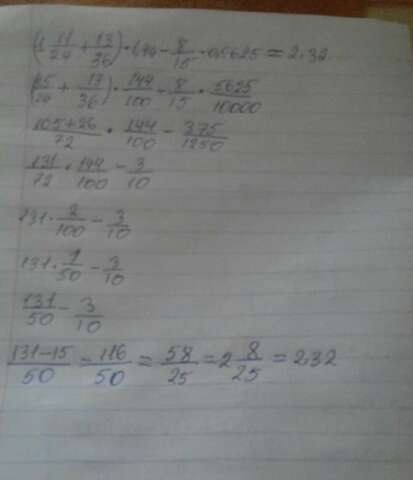 (1 11/24 + 13/36) · 1,44 - 8/15 · 0,5625 = 2,32
(35/24 + 13/36) · 144/100 - 8/15 · 5625/10000
105+26/72 · 144/100 - 375/1250
131/72 · 144/100 - 3/10
131 · 2/100 - 3/10
131 · 1/50 - 3/10
131/50 - 3/10
131-15/50 = 116/50 = 58/25 = 2 8/25 = 2,32